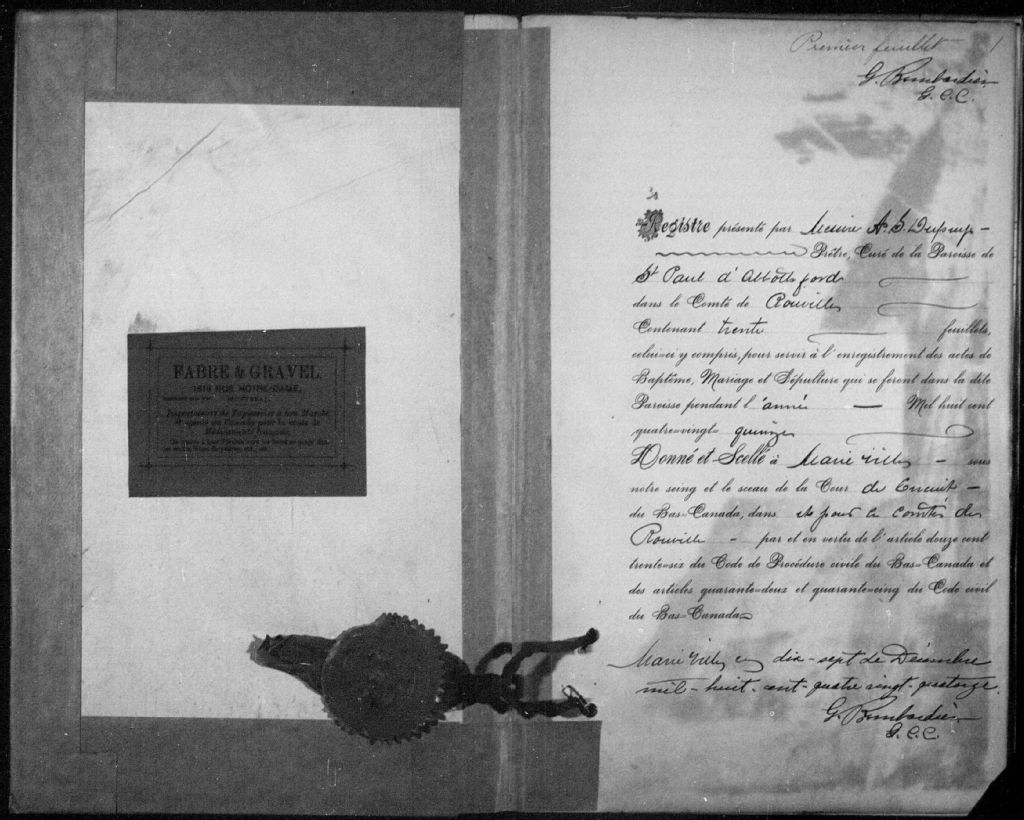 FABRE & GRAVEL,
1619 RUE NOTRE-DAME,
MONTREAL.
Importateurs de Papeteries à bon Marché
et agents au Canada pour la vente de
Médicaments français.
Premier feuillet 1
G. Bombardier
G. C. C.
Registre présenté par Messire A. S. Dupuy -
Prêtre, Curé de la Paroisse de
St Paul d'Abbottsford
dans le Comté de Rouville
Contenant trente feuillets,
celui-ci y compris, pour servir à l'enregistrement des actes de
Baptême, Mariage et Sépulture qui se feront dans la dite
Paroisse pendant l'année — Mil huit cent
quatre-vingt quinze
Donné et Scellé à Marieville - sous
notre seing et le sceau de la Cour de Circuit -
du Bas-Canada, dans et pour le comté de
Rouville - par et en vertu de l'article douze cent
trente-six du Code de Procédure civile du Bas-Canada et
des articles quarante-deux et quarante-cinq du Code civil
du Bas-Canada
Marieville ce dix-sept de Décembre
mil-huit-cent-quatre vingt-quatorze.
G. Bombardier
G. C. C.